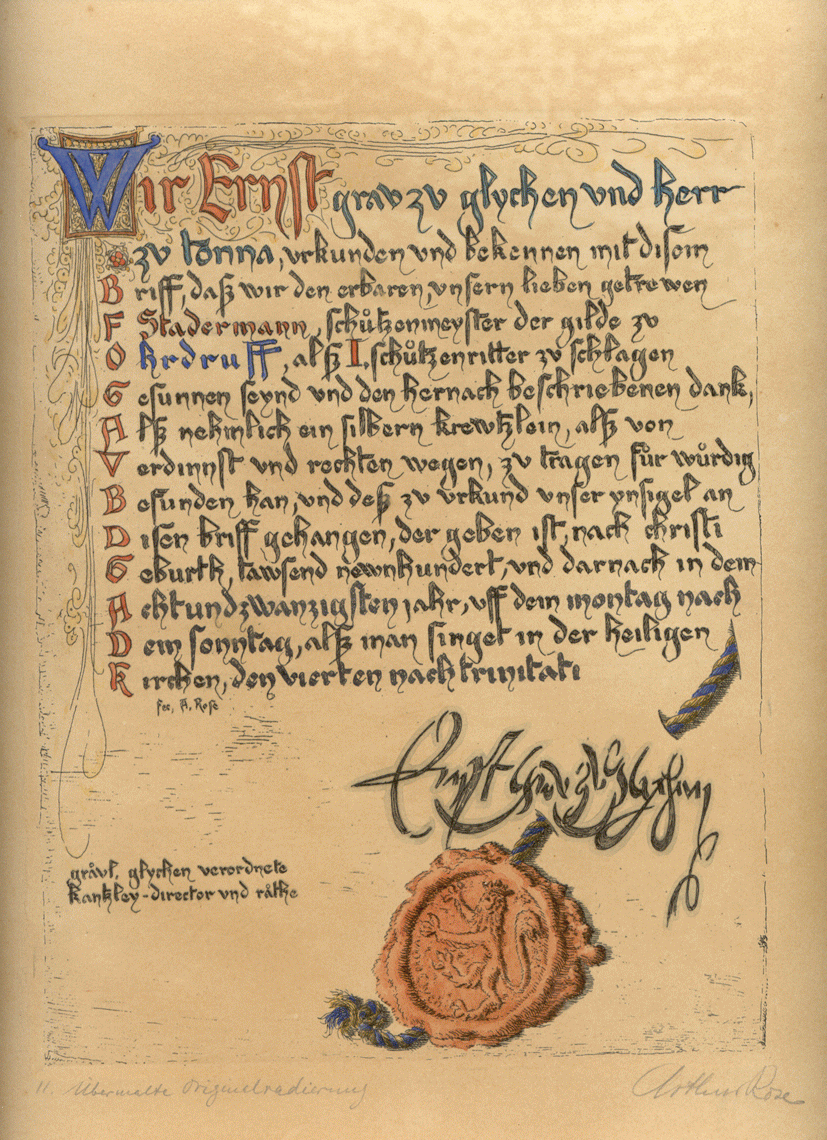 Wir Ernst grav zv glychen vnd herr
zv tonna, vrkunden vnd bekennen mit disom
Briff, daß wir den erbaren, vnsern lieben getrewen
F Stadermann, schůtzenmeyster der gilde zv
Ohrdruff, alß I. schůtzenritter zv schlagen
Gesunnen seynd vnd den hernach beschriebenen dank,
Alß nehmlich ein silbern krewtzlein, alß von
Verdinnst vnd rechten wegen, zv tragen fůr wůrdig
Befunden han, vnd deß zv vrkund vnser ynsigel an
Disen briff gehangen, der geben ist, nach christi
Geburth, tawsend newnhundert, vnd darnach in dem
Achtundzwanzigsten jahr, vff dem montag nach
Dem sonntag, alß man singet in der heiligen
Kirchen, den vierten nach trinitati
fec. A. Rose
Ernst Grav zv Glychen
grävl. glychen verordnete
kantzley-director vnd räthe
11. Übermalte Originalradierung
Arthur Rose